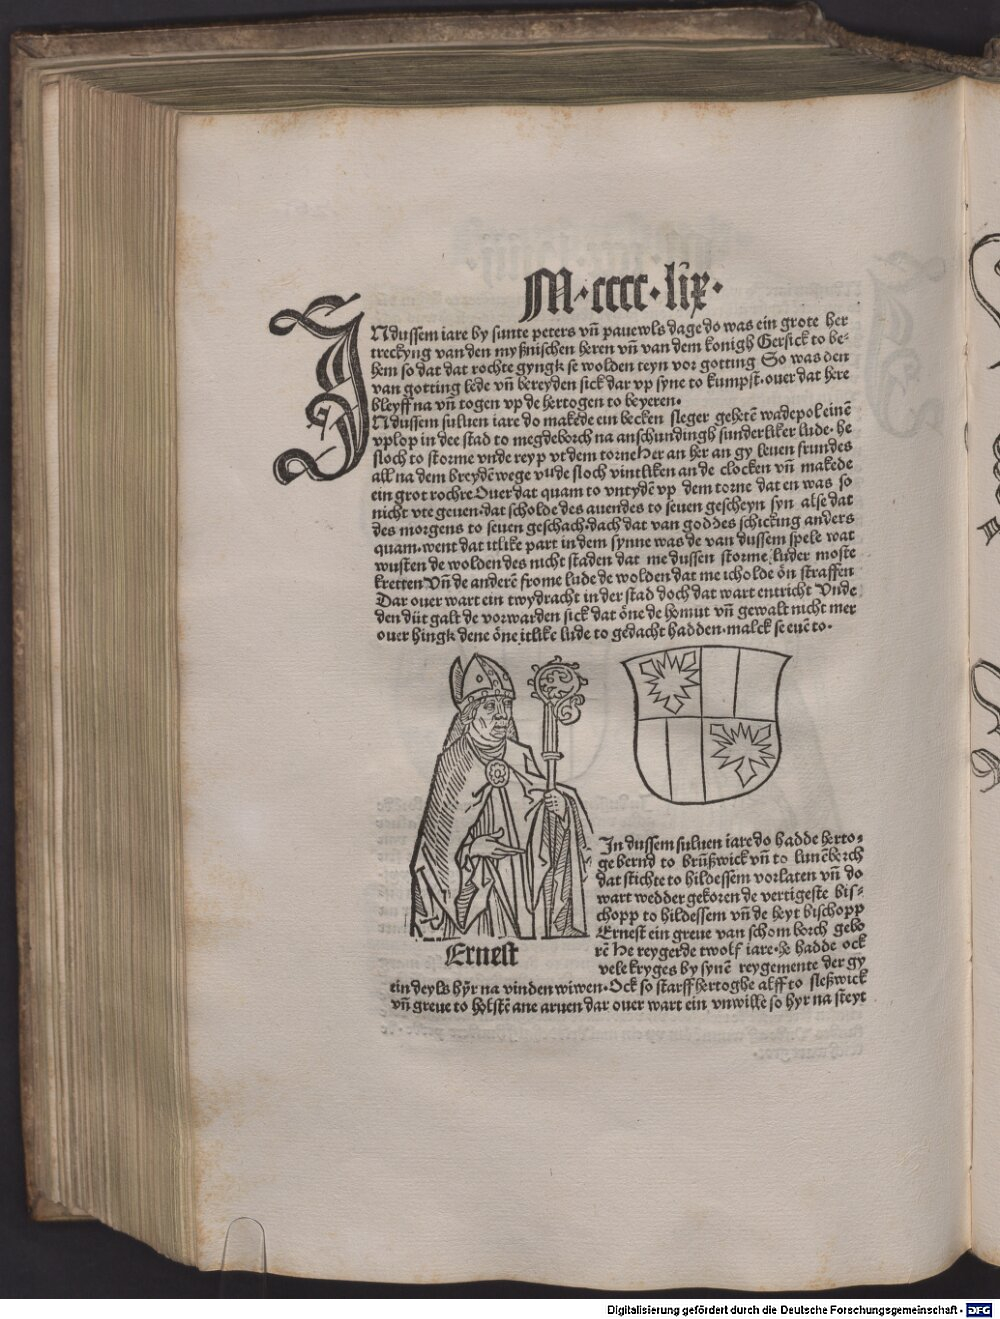 M·cccc·lix·
INdussem iare by sunte peters vn̄ pauewls dage do was ein grote her
treckyng van den myßnischen heren vn̄ van dem konigh Gersick to be-
hem so dat dat rochte gyngk se wolden teyn vor gotting So was den
van gotting lede vn̄ bereyden sick dar vp syne to kumpst. ouer dat here
bleyff na vn̄ togen vp de hertogen to beyeren.
INdussem suluen iare do makede ein becken sleger gehetē wadepol einē
vplop in dee stad to megdeborch na anschundingh sunderliker lude. he
sloch to storme vnde reyp vt dem torne Her an her an gy leuen frundes
all na dem breydē wege vnde sloch vintliken an de clocken vn̄ makede
ein grot rochre Ouer dat quam to vntydē vp dem torne dat en was so
nicht vte geuen. dat scholde des auendes to seuen gescheyn syn alse dat
des morgens to seuen geschach. dach dat van goddes schickung anders
quam. went dat itlike part in dem synne was de van dussem spele wat
wusten de wolden des nicht staden dat me dussen storme luder moste
kretten Vn̄ de anderē frome lude de wolden dat me scholde ön straffen
Dar ouer wart ein twydracht in der stad doch dat wart entricht Vnde
den düt galt de vorwarden sick dat öne de homut vn̄ gewalt nicht mer
ouer hingk dene öne itlike lude to gedacht hadden. malck se euē to.
In dussem suluen iare do hadde herto-
ge bernd to brūßwick vn̄ to lunēborch
dat stichte to hildessem vorlaten vn̄ do
wart wedder gekoren de vertigeste bis-
chopp to hildessem vn̄ de heyt bischopp
Ernest ein greue van schomborch gebo
rē He reygerde twolf iare. he hadde ock
vele kryges by synē reygemente der gy
Ernest
ein deyls hÿr na vinden wiwen. Ock so starff hertoghe alff to sleßwick
vn̄ greue to holstē ane aruen dar ouer wart ein vnwille so hyr na steyt
Digitalisierung gefördert durch die Deutsche Forschungsgemeinschaft - DFG